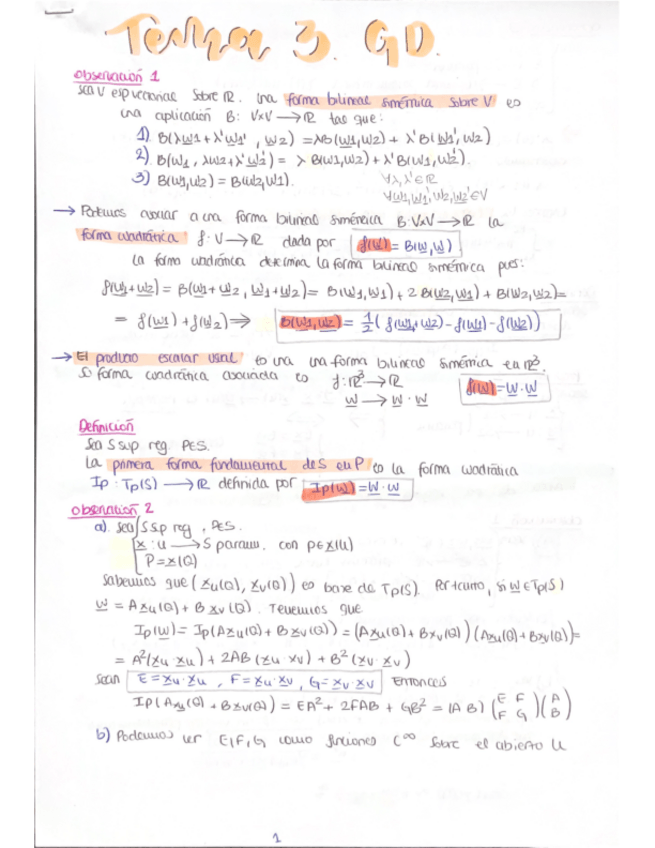 Tema 3. GD.
Observación 1
Sea V esp vectorial sobre ℝ. Una forma bilineal simétrica sobre V es
una aplicación B: V×V → ℝ tal que:
1) B(λw1 + λ'w1', w2) = λB(w1,w2) + λ'B(w1',w2)
2) B(w1, λw2 + λ'w2') = λ B(w1,w2) + λ'B(w1,w2').
3) B(w1,w2) = B(w2,w1). ∀λ,λ'∈ℝ
∀w1,w1',w2,w2'∈V
→ Podemos asociar a una forma bilineal simétrica B: V×V → ℝ la
forma cuadrática f: V → ℝ dada por f(w) = B(w,w)
La forma cuadrática determina la forma bilineal simétrica pues:
f(w1+w2) = B(w1+w2, w1+w2) = B(w1,w1) + 2B(w2,w1) + B(w2,w2) =
= f(w1) + f(w2) ⇒ B(w1,w2) = 1/2 (f(w1+w2) - f(w1) - f(w2))
→ El producto escalar usual es una forma bilineal simétrica en ℝ³.
Su forma cuadrática asociada es f: ℝ³ → ℝ
w → w·w f(w) = w·w
Definición
Sea S sup reg. P∈S.
La primera forma fundamental de S en P es la forma cuadrática
Ip: Tp(S) → ℝ definida por Ip(w) = w·w
Observación 2
a). Sea S sp reg, P∈S.
x: U → S param. con p∈x(U)
P = x(Q)
Sabemos que (xu(Q), xv(Q)) es base de Tp(S). Por tanto, si w∈Tp(S)
w = Axu(Q) + Bxv(Q). Tenemos que
Ip(w) = Ip(Axu(Q) + Bxv(Q)) = (Axu(Q) + Bxv(Q))(Axu(Q) + Bxv(Q)) =
= A²(xu·xu) + 2AB(xu·xv) + B²(xv·xv)
Sean E = xu·xu, F = xu·xv, G = xv·xv Entonces
Ip(Axu(Q) + Bxv(Q)) = EA² + 2FAB + GB² = (A B) (E F
F G) (A
B)
b) Podemos ver E,F,G como funciones C^∞ sobre el abierto U
1